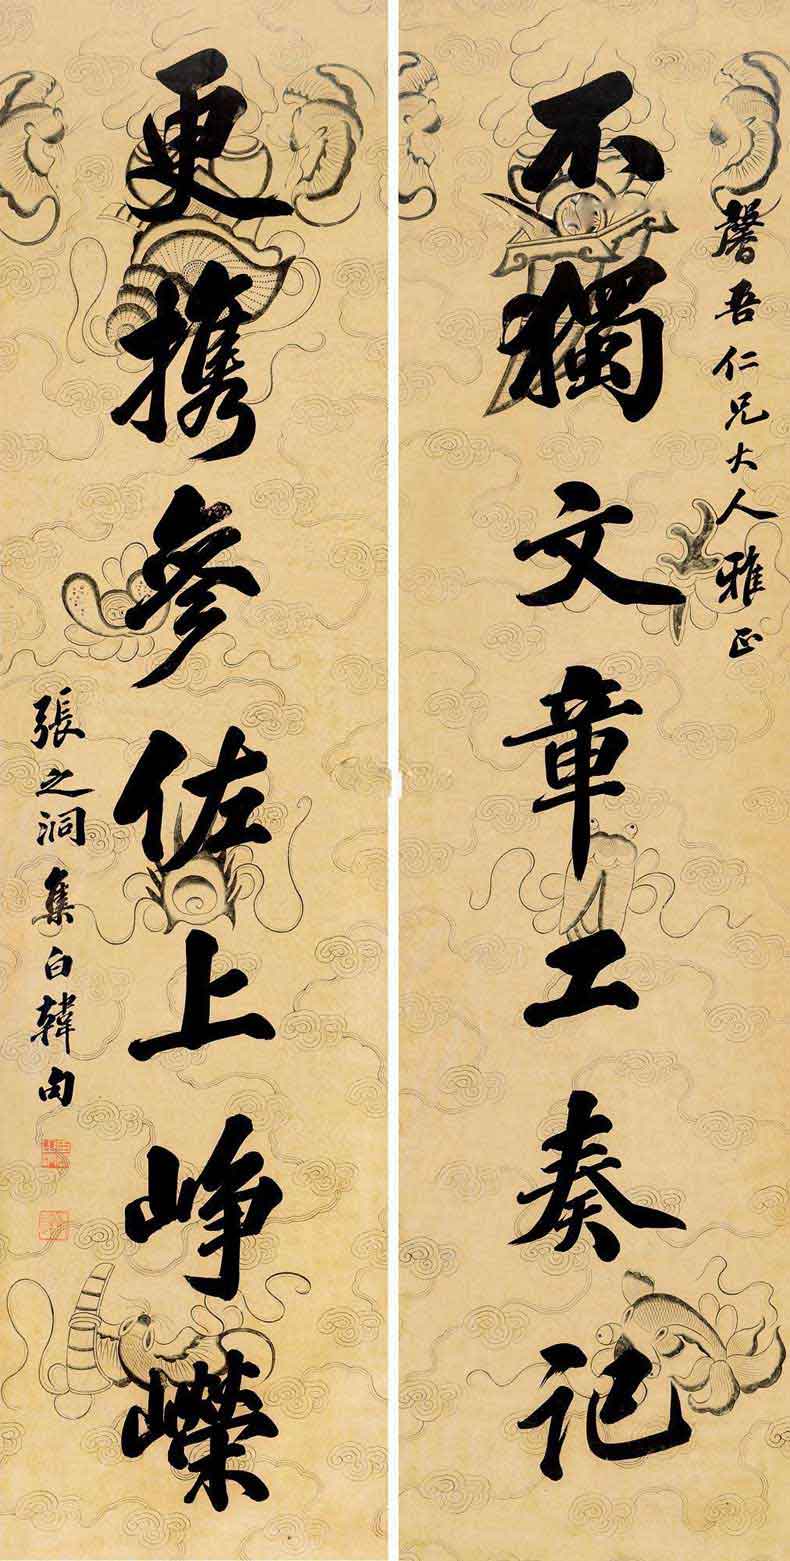 馨吾仁兄大人雅正
不獨文章工奏記
更攜參佐上崢嶸
張之洞集白韓句